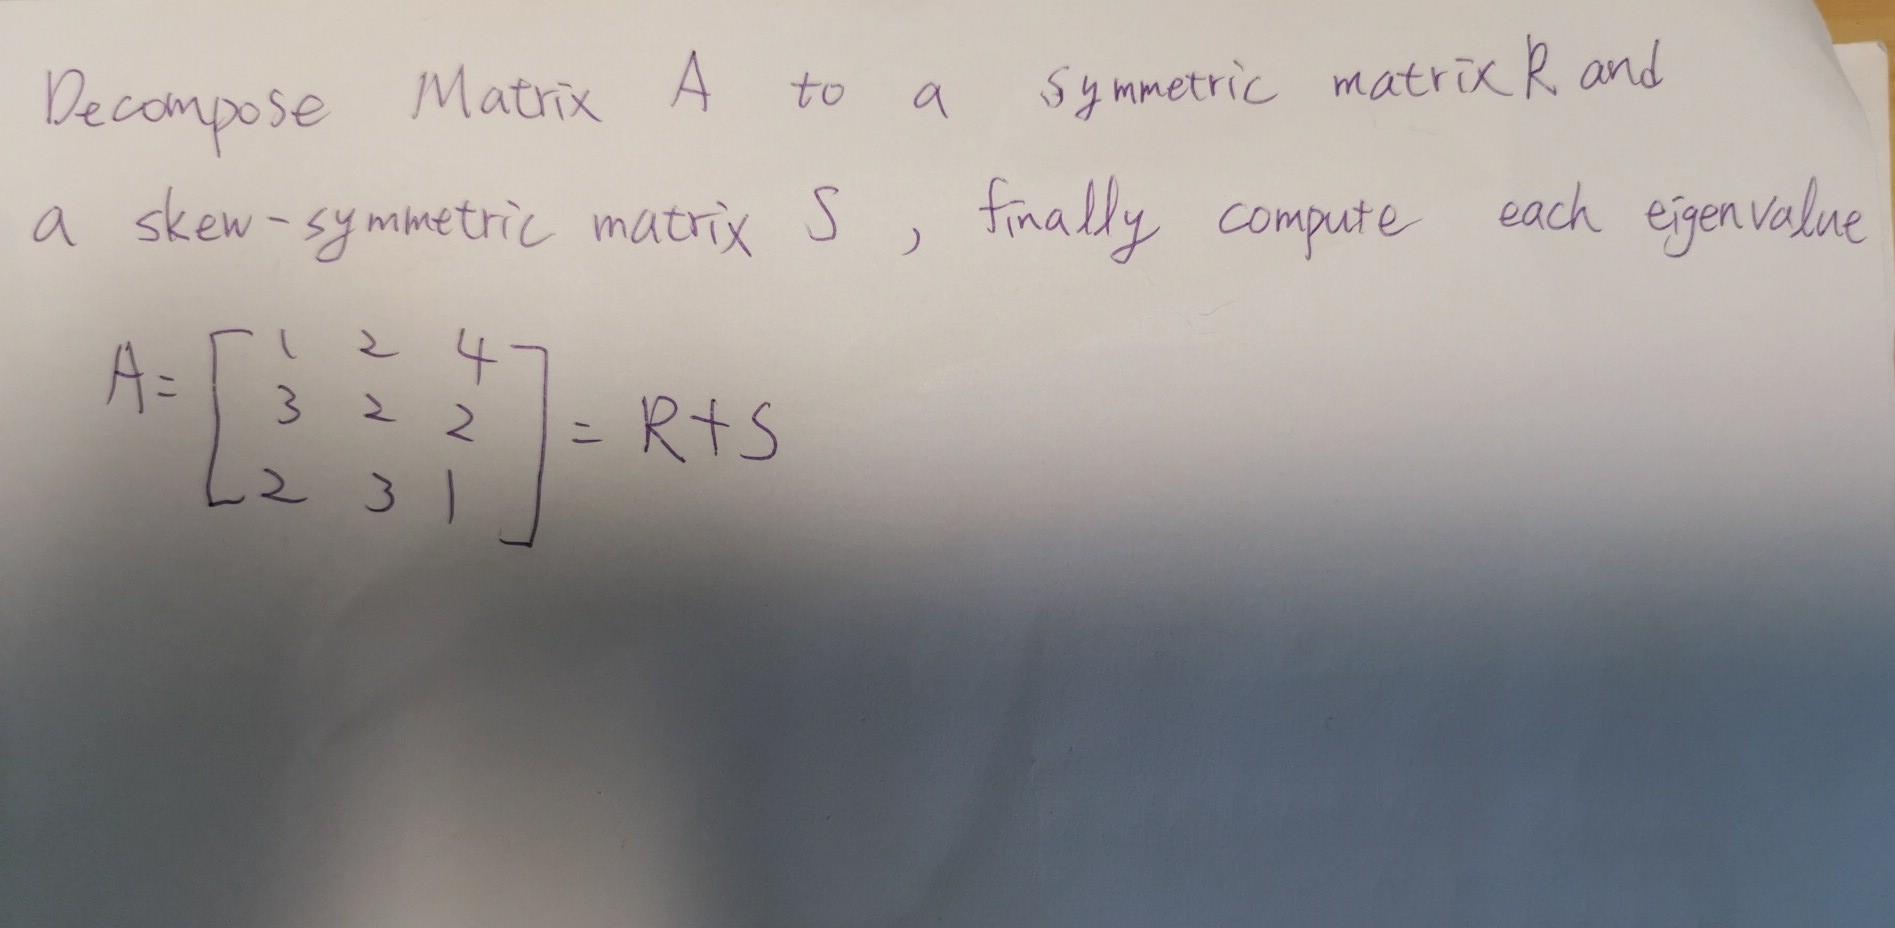 Decompose Matrix A to a symmetric matrix R and
a skew-symmetric matrix S, finally compute each eigenvalue
A= [ 1 2 4
3 2 2
2 3 1 ] = R+S